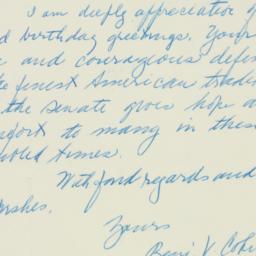 I am deeply appreciative of
d birthday greetings. Your
and courageous defen
te finest American tradi
the Senate gives hope a
mfort to many in these
oubled times.
With fond regards and
ishes.
Yours
Benj V Coh